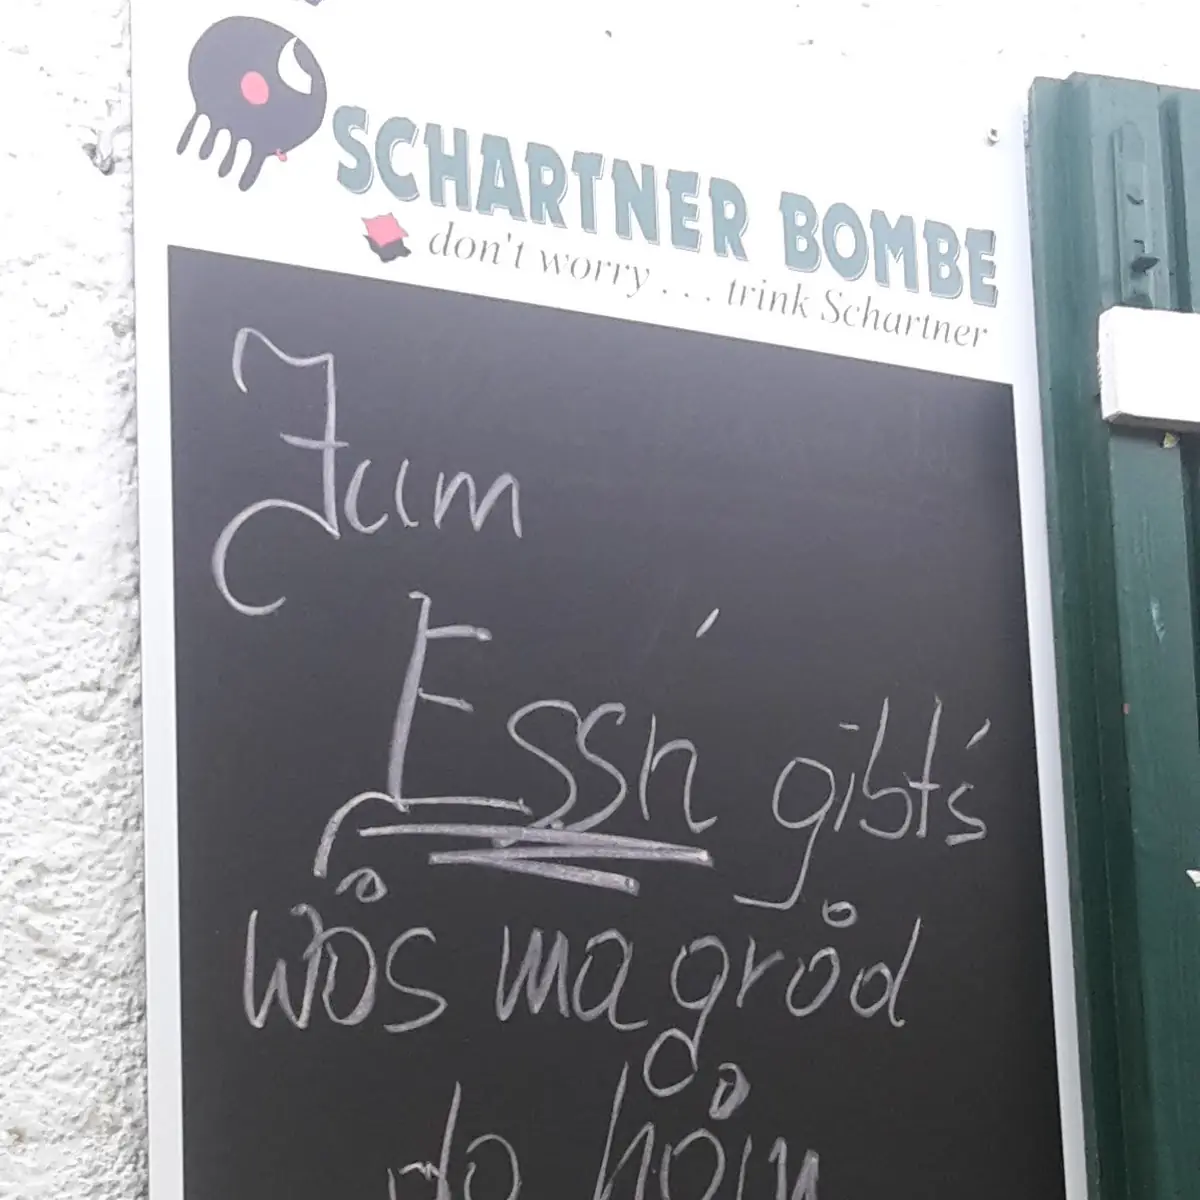 SCHARTNER BOMBE
don't worry . . . trink Schartner
Zum
Essn gibt's
wo̊s ma gro̊d
do ho̊m